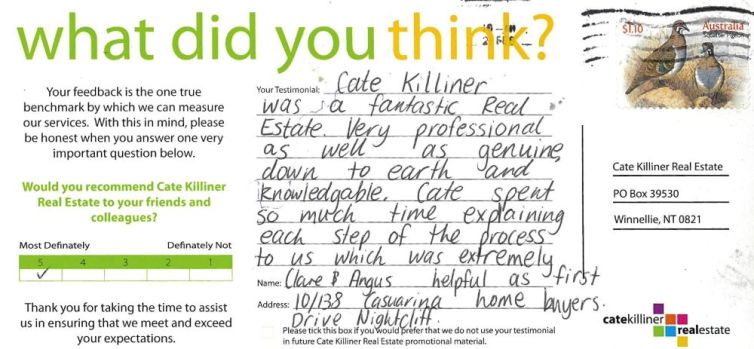 what did you think?
Your feedback is the one true
benchmark by which we can measure
our services. With this in mind, please
be honest when you answer one very
important question below.
Would you recommend Cate Killiner
Real Estate to your friends and
colleagues?
Most Definately Definately Not
5 4 3 2 1
✓
Thank you for taking the time to assist
us in ensuring that we meet and exceed
your expectations.
Your Testimonial: Cate Killiner
was a fantastic Real
Estate. Very professional
as well as genuine,
down to earth and
knowledgable. Cate spent
so much time explaining
each step of the process
to us which was extremely
helpful as first
home buyers.
Name: Clare & Angus
Address: 10/138 Casuarina
Drive Nightcliff.
Please tick this box if you would prefer that we do not use your testimonial
in future Cate Killiner Real Estate promotional material.
$1.10 Australia
Squatter Pigeon
Cate Killiner Real Estate
PO Box 39530
Winnellie, NT 0821
catekilliner
realestate